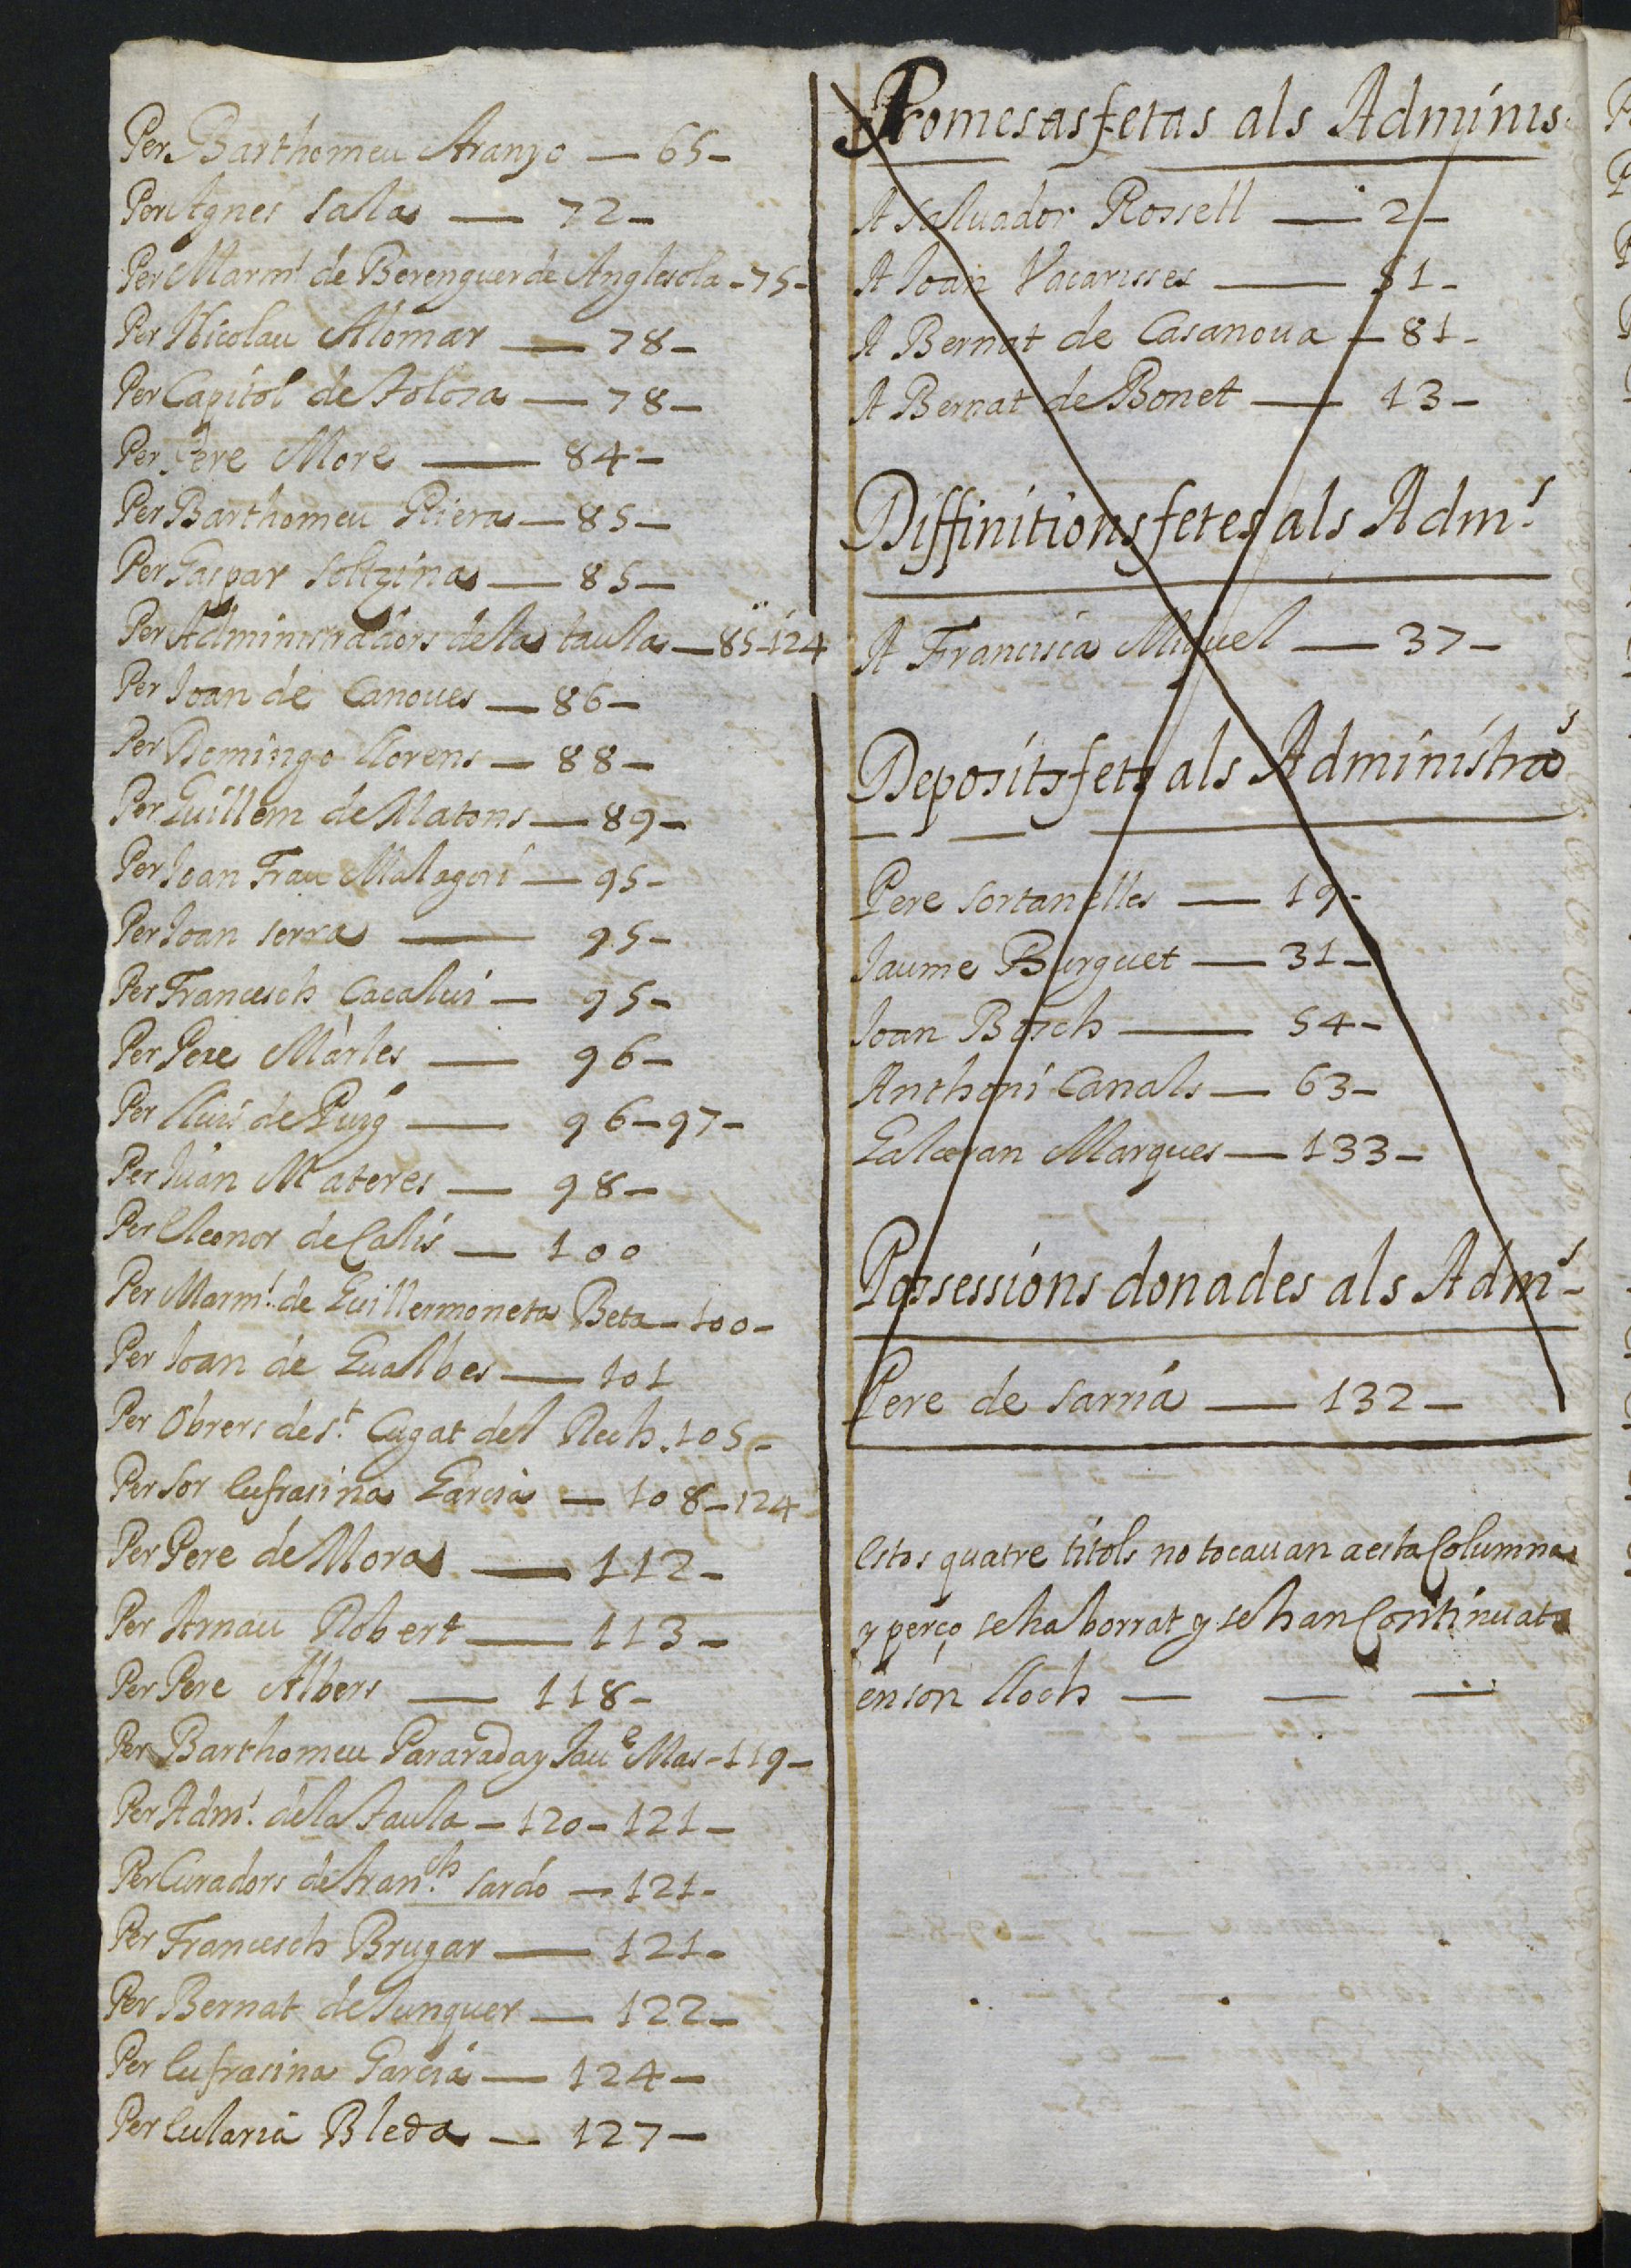 Per Barthomeu Aranyo — 65 –
Per Agnes Sala — 72 –
Per Marm.ʳ de Berenguer de Anglesola – 75 –
Per Nicolau Alomar — 78 –
Per Capitol de Tolosa — 78 –
Per Pere More — 84 –
Per Barthomeu Riera — 85 –
Per Gaspar — 85 –
Per Administradors dela taula — 85 – 124
Per Joan de Canoves — 86 –
Per Domingo Llorens — 88 –
Per Guillem de Matons — 89 –
Per Joan Frau — 95 –
Per Joan Serra — 95 –
Per Francesch — 95 –
Per Pere Màrles — 96 –
Per Lluis de Puig — 96 – 97 –
Per Juan Materes — 98 –
Per Eleonor de — 100
Per Marm.ʳ de Guillermoneta Beta – 100 –
Per Joan de Gualbes — 101
Per Obrers de S.ᵗ Cugat del Rech . 105 –
Per Sor Eufrasina Garcia — 108 – 124
Per Pere de Mora — 112 –
Per Arnau Robert — 113 –
Per Pere Albers — 118 –
Per Barthomeu Pararada y Jauᵉ Mas – 119 –
Per Adm.ˢ dela Taula – 120 – 121 –
Per Curadors de Fran.ᶜʰ Sardo — 121 –
Per Francesch Brugar — 121 –
Per Bernat de Junquer — 122 –
Per Eufrasina Garcia — 124 –
Per Eularia Bleda — 127 –
Promesas fetas als Adminis.
A Salvador Rossell — 2 –
A Joan Vacarisses — 51 –
A Bernat de Casanova — 81 –
A Bernat de Bonet — 13 –
Diffinitions fetes als Adm.ˢ
A Francisca Miquel — 37 –
Deposits fets als Administraˢ
Pere Sortanelles — 19 –
Jaume Burguet — 31 –
Joan Bosch — 54 –
Anthoni Canals — 63 –
Galceran Marques — 133 –
Possessions donades als Adm.ˢ –
Pere de Sarria — 132 –
Estos quatre titols no tocauan a esta Columna
y perço se ha borrat y se han Continuat
en són lloch — — —